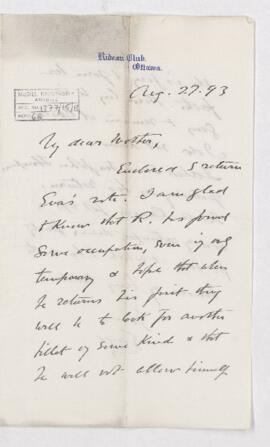 Rideau Club,
Ottawa.
Aug. 27. 93
My dear Mother,
Enclosed I return
Eva's note. I am glad
to know that R. has found
some occupation, even if only
temporary & hope that when
he returns his first thing
will be to look for another
billet of some kind & that
he will not allow himself